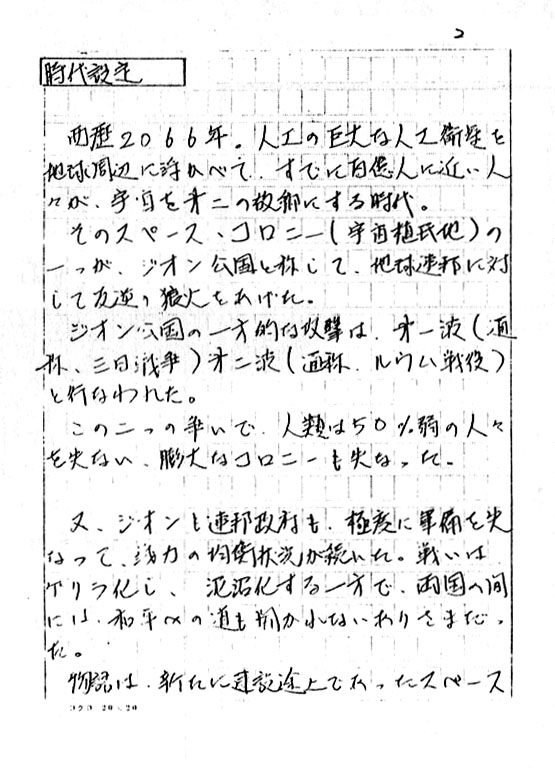 2
時代設定
西歴2066年。人工の巨大な人工衛星を
地球周辺に浮かべて、すでに百億人に近い人
々が、宇宙を才二の故郷にする時代。
そのスペース・コロニー(宇宙植民地)の
一つが、ジオン公国と称して、地球連邦に対
して反逆の狼火をあげた。
ジオン公国の一方的な攻撃は、才一波(通
称、三日戦争)才二波(通称、ルウム戦役)
と行なわれた。
この二つの争いで、人類は50%弱の人々
を失ない、膨大なコロニーも失なった。
又、ジオンも連邦政府も、極度に軍備を失
なって、勢力の均衡状況が続いた。戦いは
ゲリラ化し、泥沼化する一方で、両国の間
には、和平への道も開かれないありさまだっ
た。
物語は、新たに建設途上であったスペース
20×20